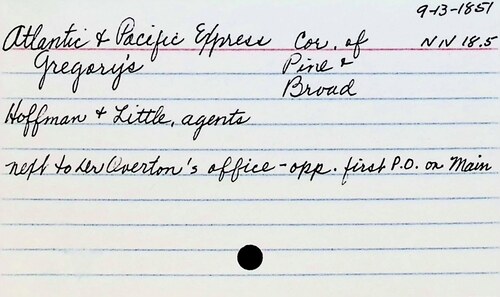 9-13-1851
Atlantic & Pacific Express Cor. of NN 18.5
Gregory's Pine &
Broad
Hoffman & Little, agents
next to Dr Overton's office - opp. first P.O. on Main